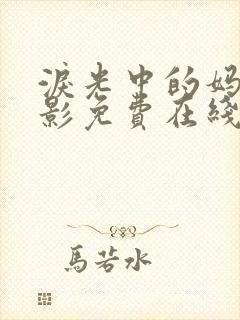 淚光中的妈
影免費在綫
馬若水